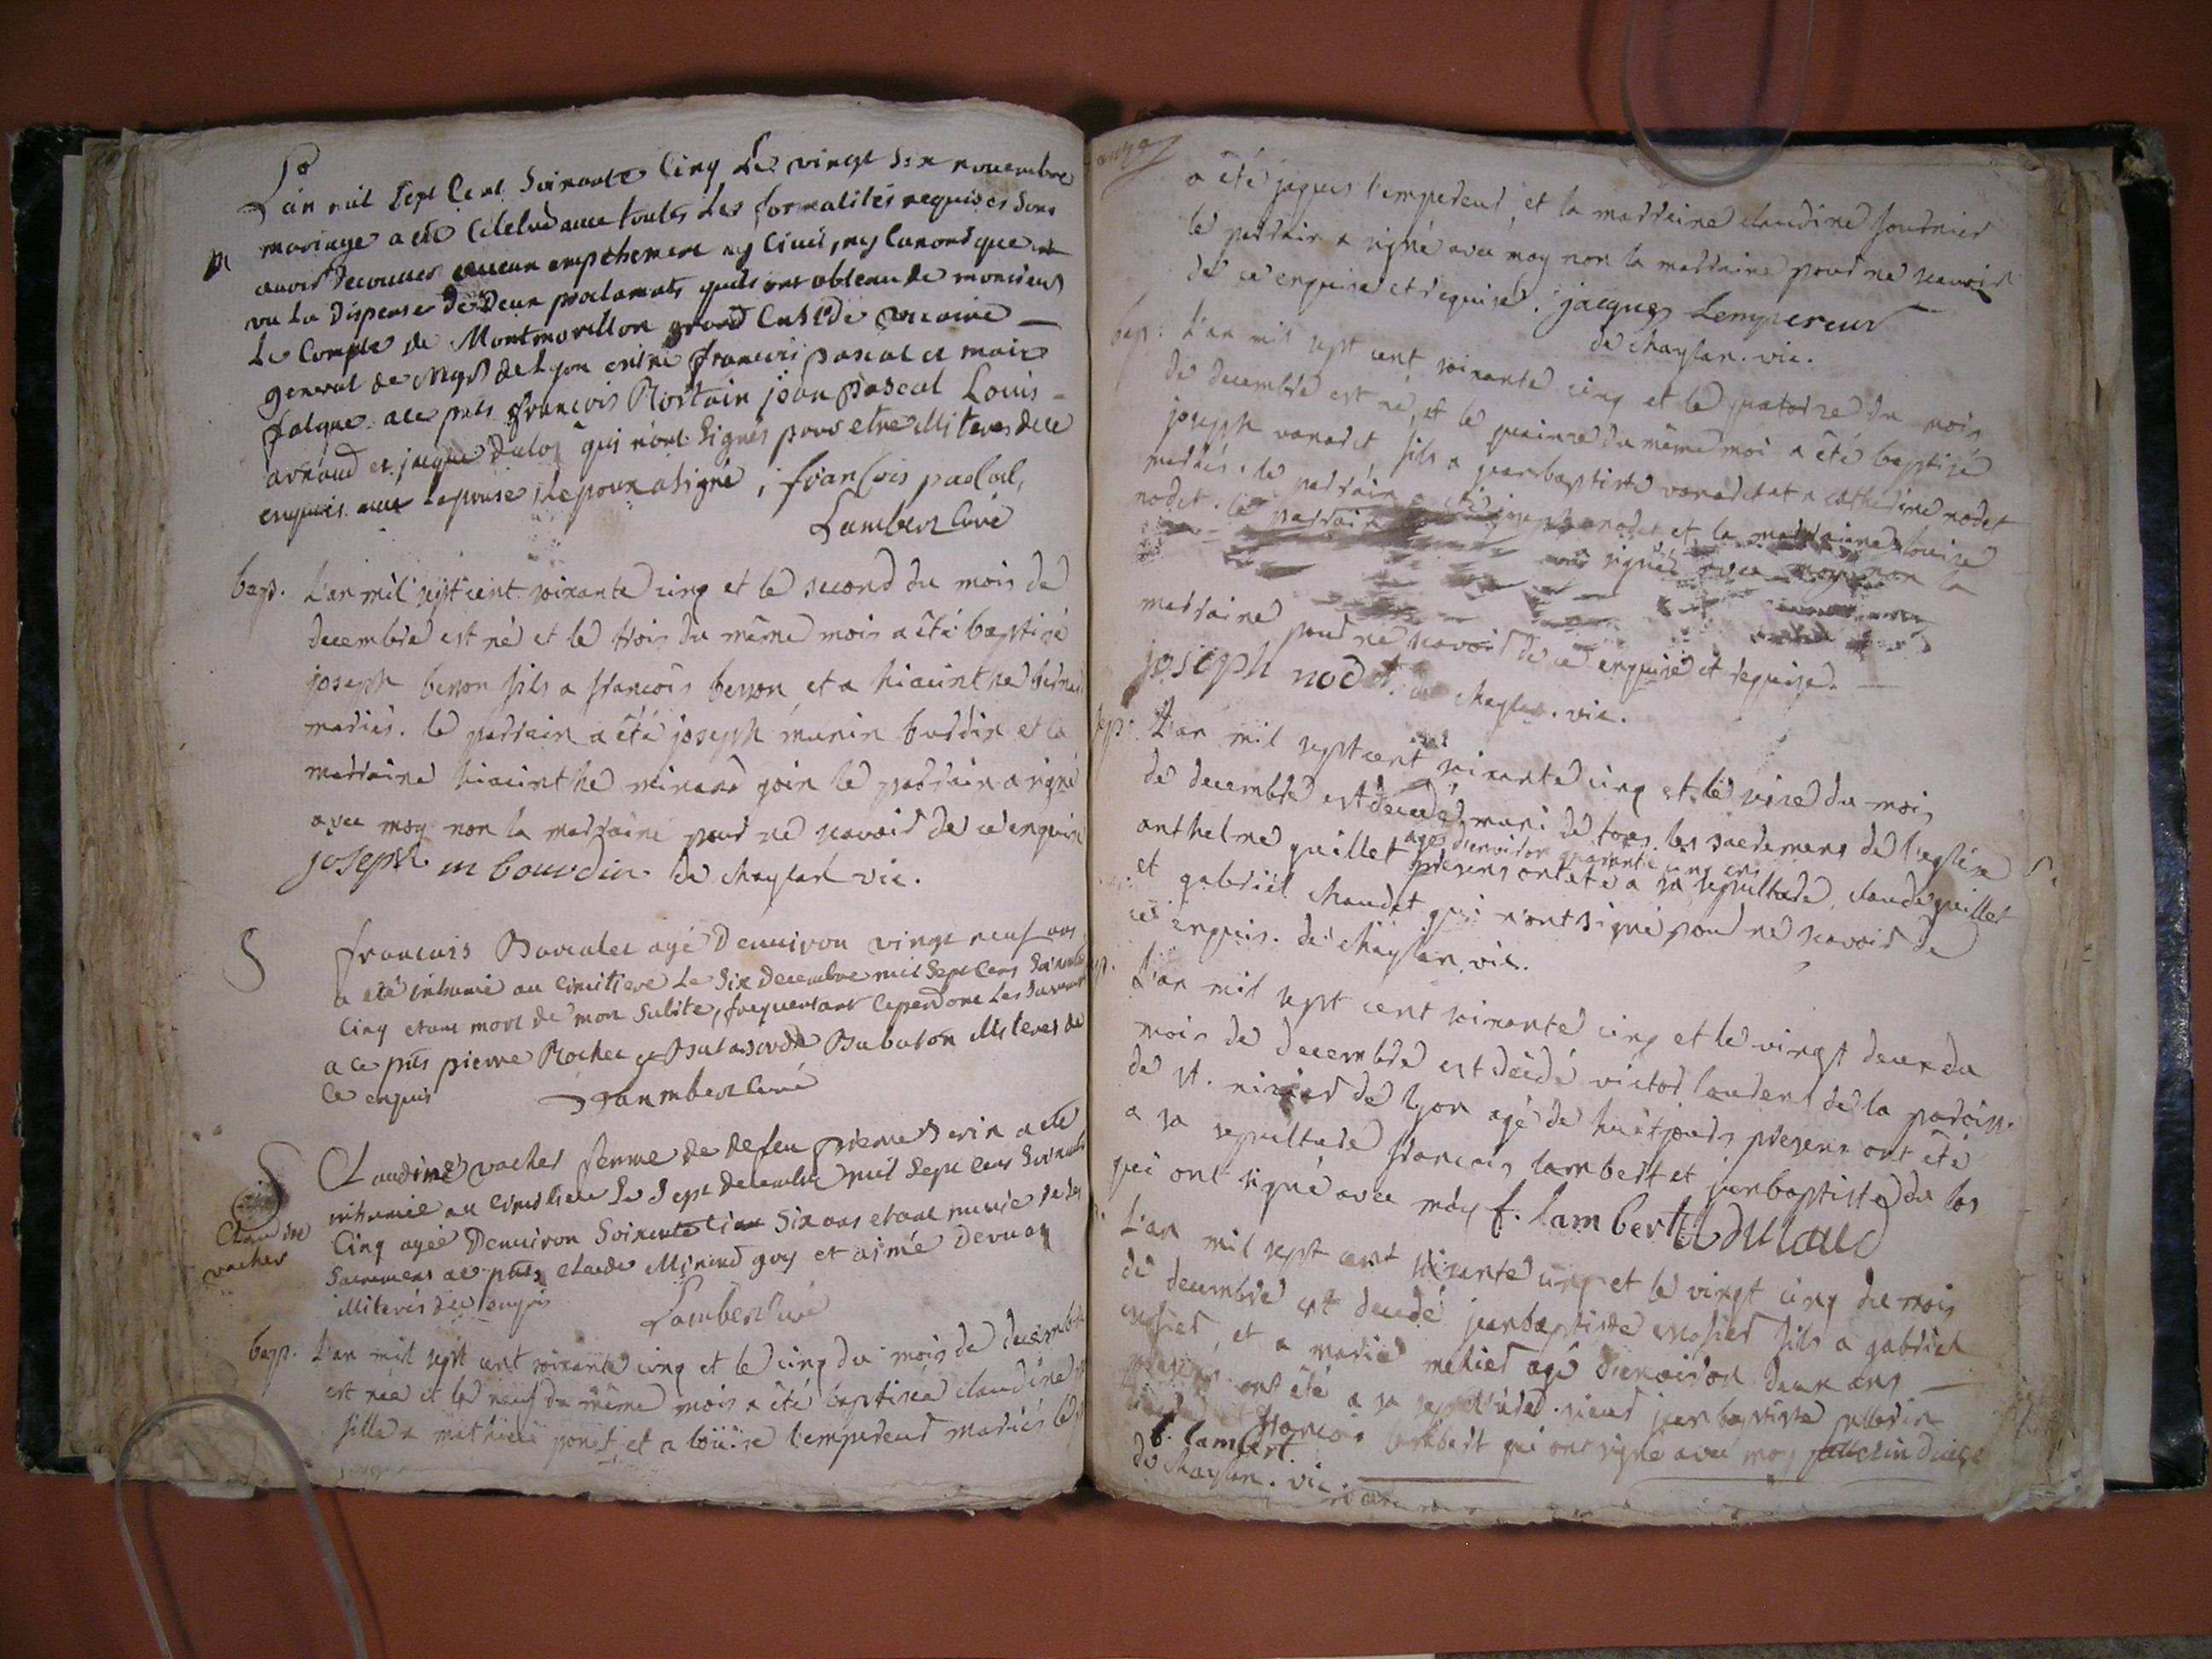 L'an mil sept Cent Soixante Cinq Le vingt six novembre
M mariage a été Célébré avec toutes Les formalités requises Sans
avoir decouvert aucun empechement ny Civil, ny Canonique
vu La dispense de Deux proclamats quils ont obtenu de monsieur
Le Compte de Montmorillon grand Custode vicaire
general de Mgr de Lyon entre francois pascal et marie
falque a ce pnts francois Rostain jean pascal Louis
arnaud et jacque Dulos qui n'ont Signés pour etre illiteres de ce
enquis avec Lepouse, Lepoux a signé, francois pascal,
Lambert Curé
bap. L'an mil sept cent soixante cinq et le second du mois de
decembre est né et le trois du même mois a été baptisé
joseph besson fils a francois besson, et a hiacinthe
mariés. le parrain a été joseph munin burdin et la
marraine hiacinthe minard join le parrain a signé
avec moy non la marraine pour ne scavoir de ce enquise
joseph m bourdin de chaylan vic.
S francois age Denviron vingt neuf ans
a été inhumé au Cimitiere Le Six Decembre mil Sept Cens Soixante
Cinq etant mort de mort Subite, frequentant Cependant Les Sacremens
a ce pnts pierre Rochet et Babolon illiteres de
Ce enquis Lambert Curé
S Claudine vacher femme de defeu pierre a été
inhumée au Cimitiere Le Sept Decembre mil Sept Cens Soixante
Claudine
vacher
Cinq agée Denviron Soixante Six ans etant munie de Les
Sacremens a ce pnts Claude Minard goy et aimé
illiterés de ce enquis Lambert Curé
bap. L'an mil sept cent soixante cinq et le cinq du mois de decembre
est née et le neuf du même mois a été baptisée claudine
fille a mathieu ponst et a loüise l'empereur mariés le
a été jaques l'empereur, et la marraine claudine fournier
le parrain a signé avec moy non la marraine pour ne scavoir
de ce enquise et requise. jacques Lempereur
de chaylan. vic.
bap: L'an mil sept cent soixante cinq et le quatorze du mois
de decembre est né, et le quinze du même moi a été baptisé
joseph vanaret fils a jeanbaptiste vanaret et a catherine nodet
mariés. le parrain a été joseph nodet et la marraine louise
nodet. le parrain a signé avec moy non la
marraine pour ne scavoir de ce enquise et requise.
joseph nodet de chaylan. vic.
L'an mil sept cent soixante cinq et le seize du mois
de decembre est decedé, muni de tous les sacremens de l'eglise S.
anthelme guillet agé d'environ quarante cinq ans
presens ont été a sa sepulture, claude guillet
et gabriel chaudet qui n'ont signé pour ne scavoir de
ce enquis. de chaylan. vic.
L'an mil sept cent soixante cinq et le vingt deux du
mois de decembre est décédé victor laurent de la paroisse
de st. nizier de lyon agé de huit jours presens ont été
a sa sepulture francois lambert et jeanbaptiste du los
qui ont signé avec moy f. lambert
L'an mil sept cent soixante cinq et le vingt cinq du mois
de decembre est decedé jeanbaptiste fils a gabriel
et a marie agé d'environ deux ans
presens ont été a sa sepulture. sieur jeanbaptiste pellerin
et francois lambert qui ont signé avec moy
f. lambert
de chaylan. vic.